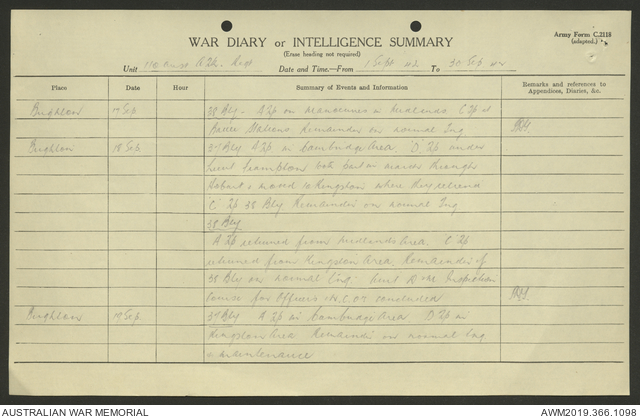 Army Form C.2118
(adapted.)
WAR DIARY or INTELLIGENCE SUMMARY
(Erase heading not required)
Unit 110 Aust A Tk. Regt Date and Time.—From 1 Sept 42 To 30 Sep 42
Place Date Hour Summary of Events and Information Remarks and references to
Appendices, Diaries, &c.
Brighton 17 Sep 38 Bty - A Tp on manoeuvres in Midlands. C Tp at
Stations. Remainder on normal Tng
Brighton 18 Sep 37 Bty A Tp in Cambridge Area. D. Tp under
Lieut Frampton took part in march through
Hobart & moved to Kingston where they relieved
C Tp 38 Bty. Remainder on normal Tng
38 Bty
A Tp returned from Midlands Area. C Tp
returned from Kingston Area. Remainder of
38 Bty on normal Tng. Lieut
Course for Officers & N.C.O's concluded
Brighton 19 Sep. 37 Bty A Tp in Cambridge Area. D Tp in
Kingston Area. Remainder on normal Tng
& maintenance
AUSTRALIAN WAR MEMORIAL
AWM2019.366.1098